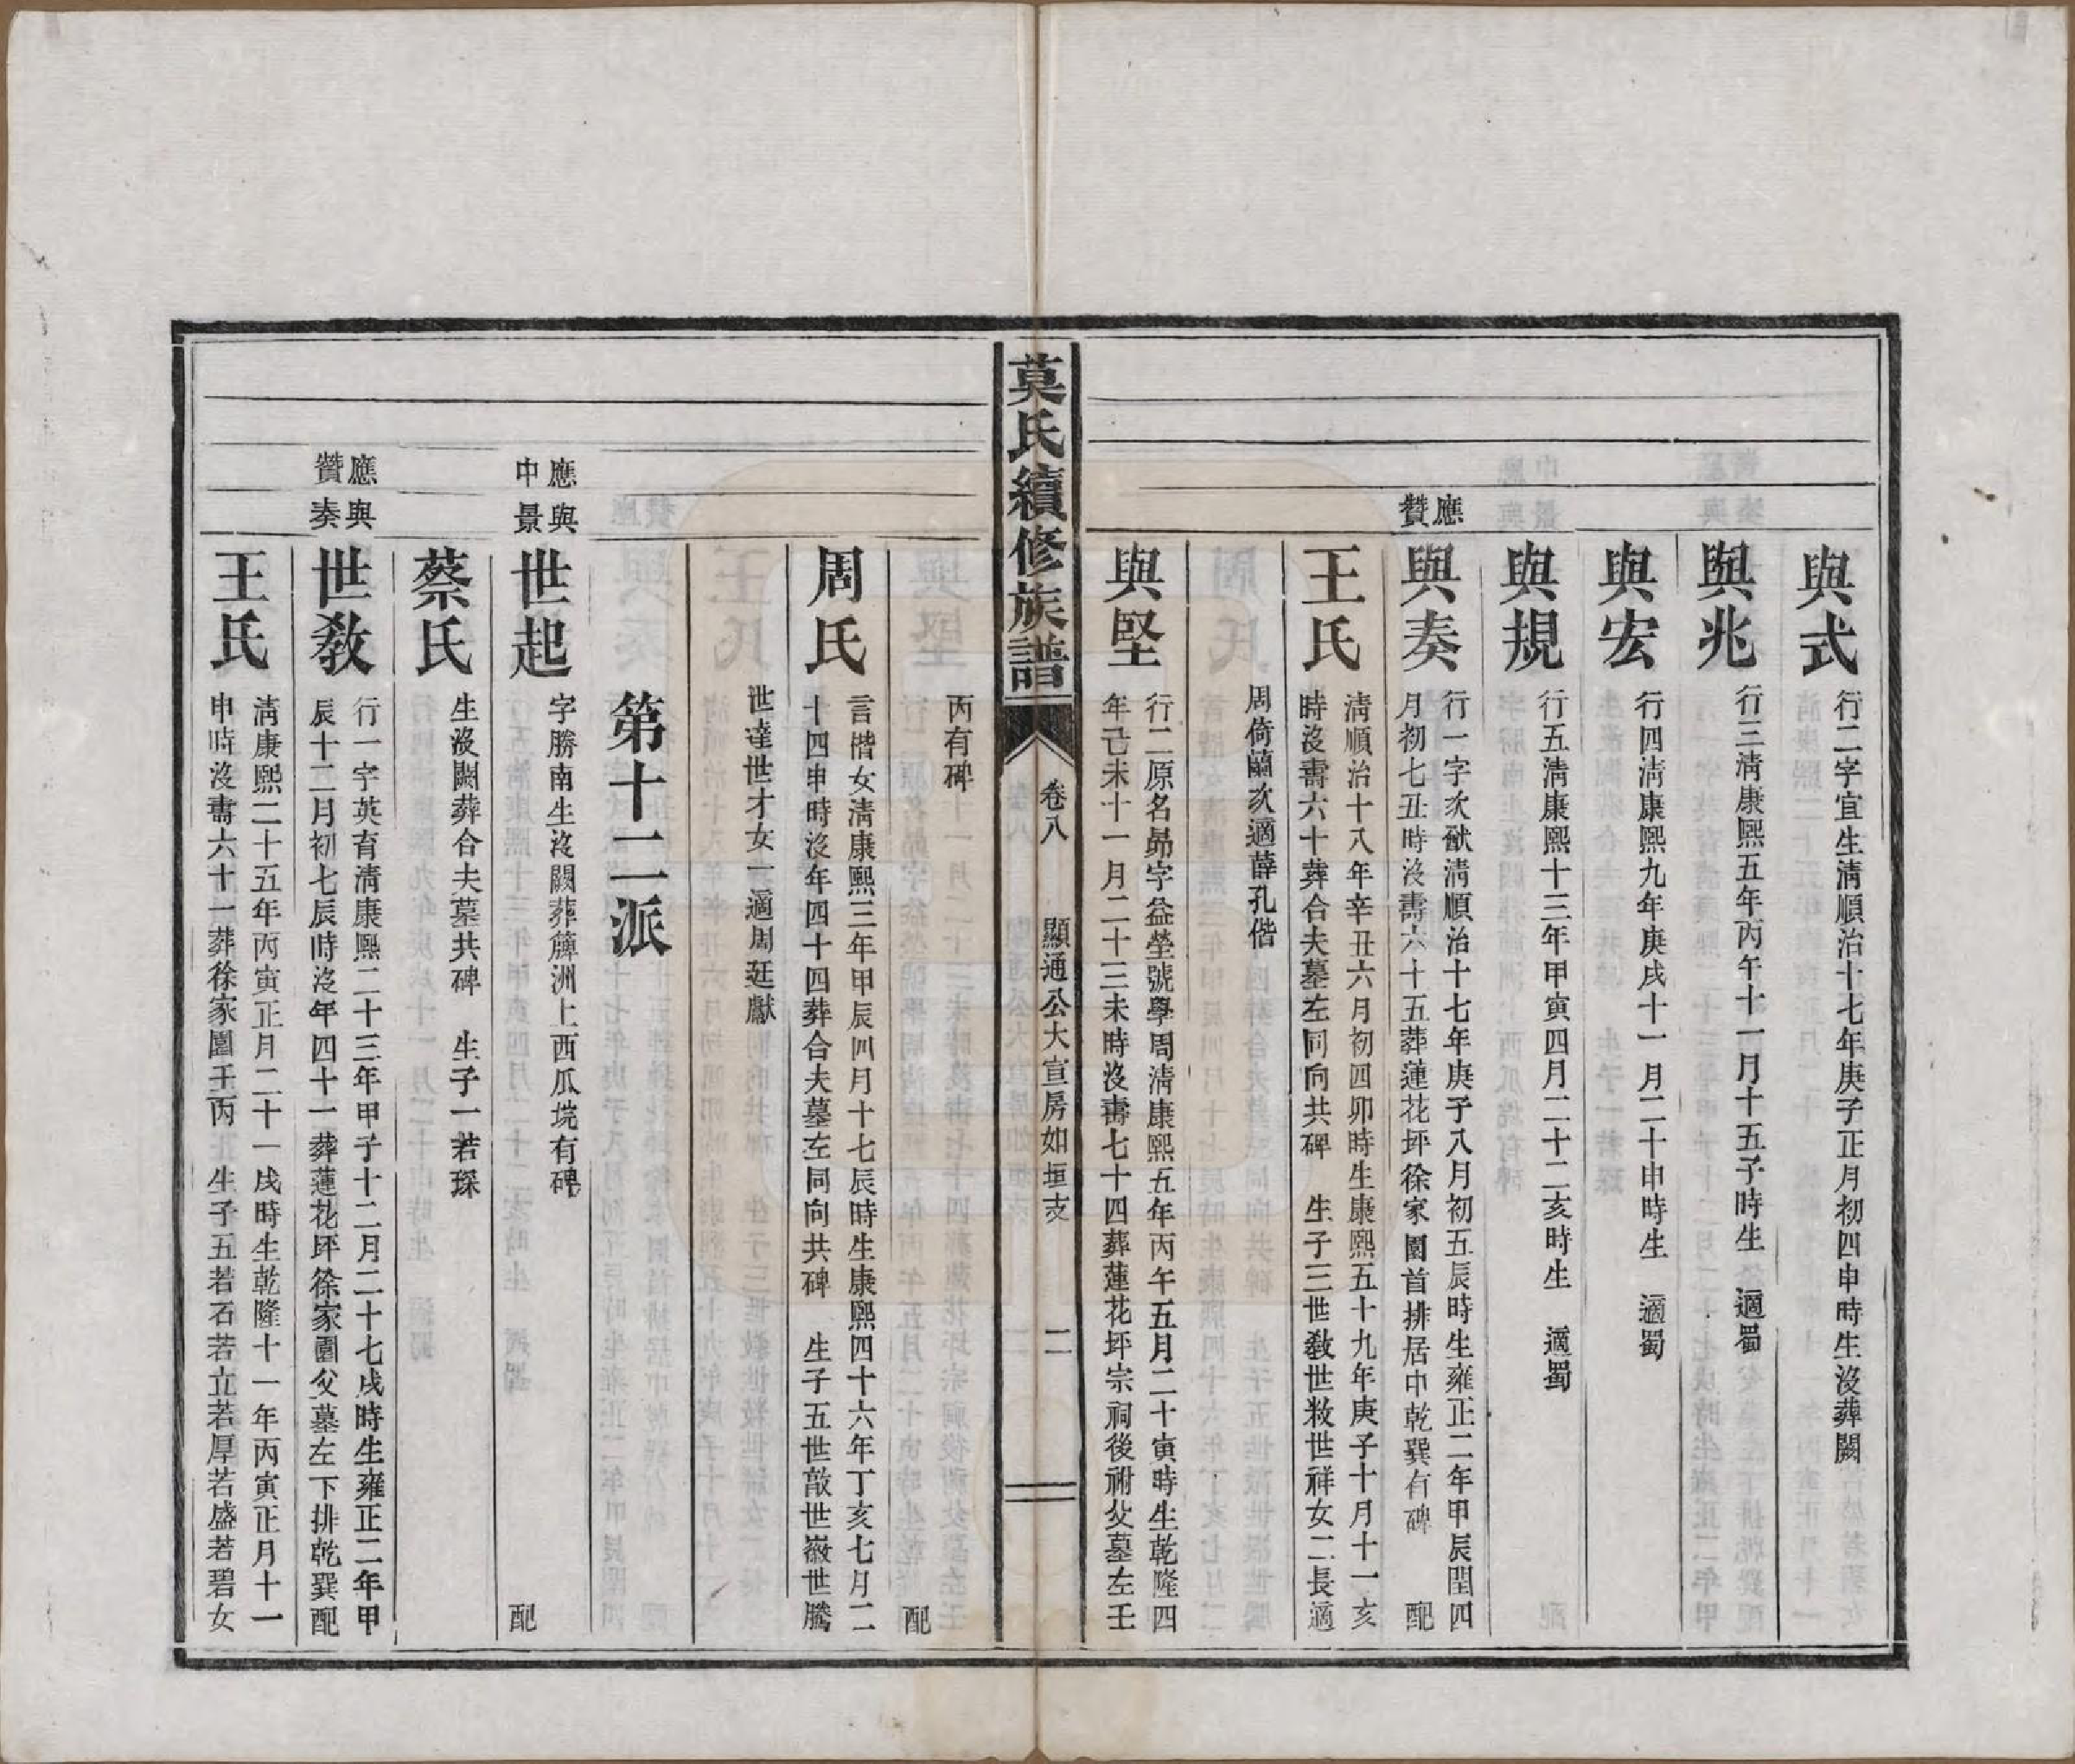 與式
行二字宜生淸順治十七年庚子正月初四申時生沒葬闕
與兆
行三淸康熙五年丙午十一月十五子時生　適蜀
與宏
行四淸康熙九年庚戌十一月二十申時生　適蜀
與規
行五淸康熙十三年甲寅四月二十二亥時生　適蜀
應贊
與奏
行一字次猷淸順治十七年庚子八月初五辰時生雍正二年甲辰閏四
月初七丑時沒壽六十五葬蓮花坪徐家園首排居中乾巽有碑　配
王氏
淸順治十八年辛丑六月初四卯時生康熙五十九年庚子十月十一亥
時沒壽六十葬合夫墓左同向共碑　生子三世敎世敉世祥女二長適
周倚蘭次適薛孔偕
與堅
行二原名昴字益瑩號學周淸康熙五年丙午五月二十寅時生乾隆四
年己未十一月二十三未時沒壽七十四葬蓮花坪宗祠後祔父墓左壬
莫氏續修族譜
卷八　顯通公大宣房如垣支　二
丙有碑　配
周氏
言偕女淸康熙三年甲辰四月十七辰時生康熙四十六年丁亥七月二
十四申時沒年四十四葬合夫墓左同向共碑　生子五世敿世嶶世騰
世達世才女一適周廷獻
第十二派
應中
與景
世起
字勝南生沒闕葬簰洲上西瓜垸有碑　配
蔡氏
生沒闕葬合夫墓共碑　生子一若琛
應贊
與奏
世敎
行一字英育淸康熙二十三年甲子十二月二十七戌時生雍正二年甲
辰十二月初七辰時沒年四十一葬蓮花坪徐家園父墓左下排乾巽配
王氏
淸康熙二十五年丙寅正月二十一戌時生乾隆十一年丙寅正月十一
申時沒壽六十一葬徐家園壬丙　生子五若石若立若厚若盛若碧女